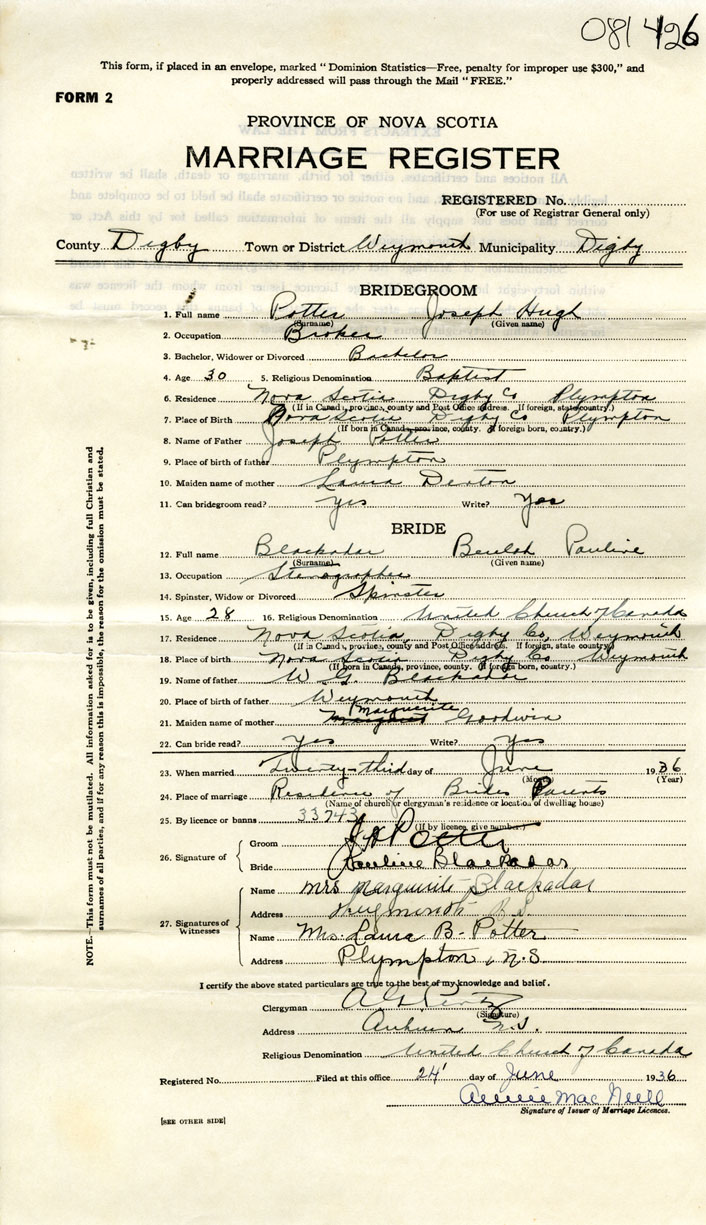 081426
This form, if placed in an envelope, marked "Dominion Statistics—Free, penalty for improper use $300," and
properly addressed will pass through the Mail "FREE."
FORM 2
PROVINCE OF NOVA SCOTIA
MARRIAGE REGISTER
REGISTERED No.
(For use of Registrar General only)
County Digby Town or District Weymouth Municipality Digby
BRIDEGROOM
1. Full name Potter Joseph Hugh
(Surname) (Given name)
2. Occupation Broker
3. Bachelor, Widower or Divorced Bachelor
4. Age 30 5. Religious Denomination Baptist
6. Residence Nova Scotia Digby Co Plympton
(If in Canada, province, county and Post Office address. If foreign, state country.)
7. Place of Birth Nova Scotia Digby Co Plympton
(If born in Canada, province, county. If foreign born, country.)
8. Name of Father Joseph Potter
9. Place of birth of father Plympton
10. Maiden name of mother Laura Denton
11. Can bridegroom read? yes Write? Yes
BRIDE
12. Full name Blackadar Beulah Pauline
(Surname) (Given name)
13. Occupation Stenographer
14. Spinster, Widow or Divorced Spinster
15. Age 28 16. Religious Denomination United Church of Canada
17. Residence Nova Scotia, Digby Co, Weymouth
(If in Canada, province, county and Post Office address. If foreign, state country)
18. Place of birth Nova Scotia Digby Co Weymouth
(If born in Canada, province, county. If foreign born, country.)
19. Name of father W. G. Blackadar
20. Place of birth of father Weymouth
21. Maiden name of mother Marguerite Goodwin
22. Can bride read? yes Write? yes
23. When married Twenty-third day of June 1936
(Month) (Year)
24. Place of marriage Residence of Brides Parents
(Name of church or clergyman's residence or location of dwelling house)
25. By licence or banns 33743
(If by licence, give number)
26. Signature of Groom J H Potter
Bride Pauline Blackadar
27. Signatures of Witnesses
Name Mrs Marguerite Blackadar
Address Weymouth N.S.
Name Mrs. Laura B. Potter
Address Plympton, N.S.
I certify the above stated particulars are true to the best of my knowledge and belief.
Clergyman
(Signature)
Address N.S.
Religious Denomination United Church of Canada
Registered No. Filed at this office 24 day of June 1936
Annie Mac Neill
Signature of Issuer of Marriage Licences.
[SEE OTHER SIDE]
NOTE.—This form must not be mutilated. All information asked for is to be given, including full Christian and
surnames of all parties, and if for any reason this is impossible, the reason for the omission must be stated.